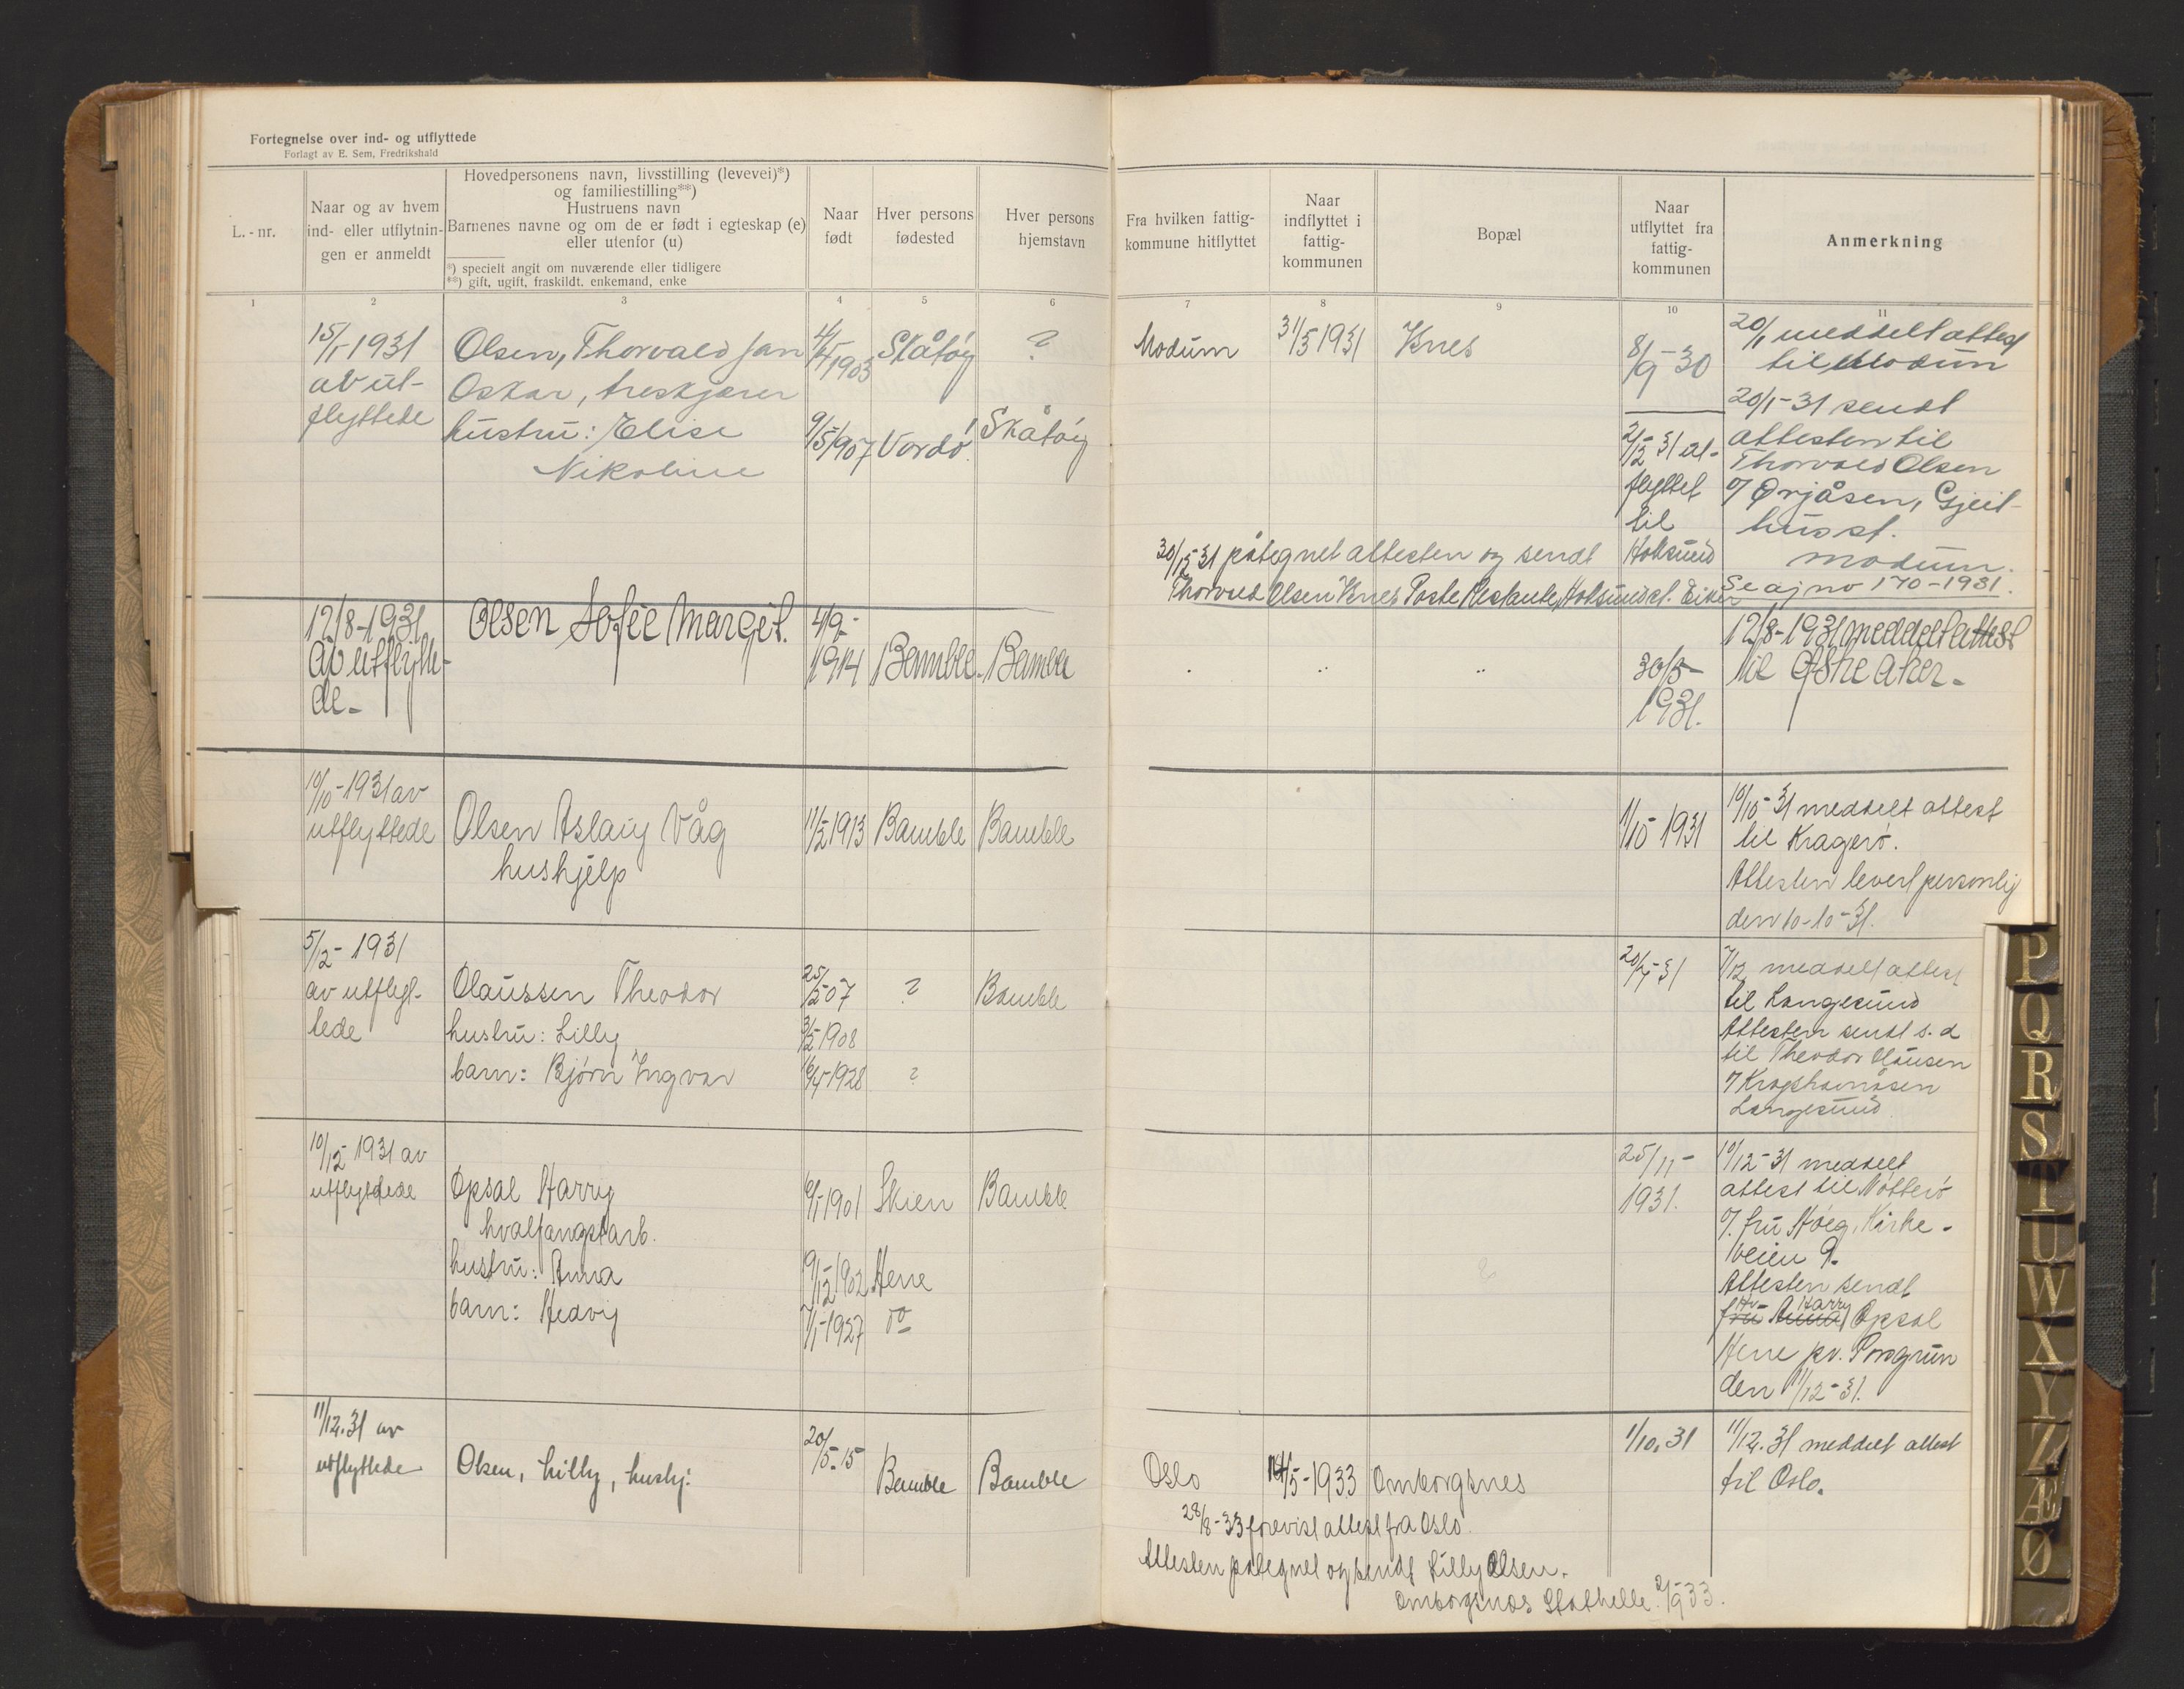 Fortegnelse over ind- og utflyttede
Forlagt av E. Sem, Fredrikshald
L.-nr.
Naar og av hvem
ind- eller utflytnin-
gen er anmeldt
Hovedpersonens navn, livsstilling (levevei)*)
og familiestilling**)
Hustruens navn
Barnenes navne og om de er født i egteskap (e)
eller utenfor (u)
*) specielt angit om nuværende eller tidligere
**) gift, ugift, fraskildt. enkemand, enke
Naar
født
Hver persons
fødested
Hver persons
hjemstavn
Fra hvilken fattig-
kommune hitflyttet
Naar
indflyttet i
fattig-
kommunen
Bopæl
Naar
utflyttet fra
fattig-
kommunen
Anmerkning
1 2 3 4 5 6 7 8 9 10 11
15/1 1931
av ut-
flyttede
Olsen, Thorvald Jan
Oskar, treskjærer
hustru: Elise
Nikoline
1903
Skåtøy
?
9/5 1907
Vordö
Skåtøy
Modum
31/3 1931
Knes
8/9-30
2/12-31 ut-
flyttet
til
Hoksund
20/1 meddelt attest
til Modum
20/1-31 sendt
attesten til
Thorvald Olsen
Ørjåsen, Gjeit-
hus st.
Modum.
Se aj no 170-1931.
30/12-31 påtegnet attesten og sendt
Thorvald Olsen Knes Poste Restante, Hoksund st. Eiker
12/8-1931
av utflytte-
de-
Olsen Sofie Margit.
4/9-
1914
Bamble
Bamble
30/5-
1931.
12/8-1931 meddelt attest
til Østre Aker-
10/10-1931 av
utflyttede
Olsen Aslaug Våg
hushjelp
11/2 1913
Bamble
Bamble
1/10-1931
10/10-31 meddelt attest
til Kragerö.
Attesten levert personlig
den 10-10-31.
5/12-1931
av utflyt-
tede
Olaussen Theodor
hustru: Lilly
barn: Bjørn Yngvar
25/2-07
?
Bamble
3/2-1908
16/4-1928
?
20/7-31
7/12 meddelt attest
til Langesund
Attesten sendt s. d
til Theodor Olausen
Langesund
10/12-1931 av
utflyttede
Opsal Harry
hvalfangstarb.
hustru: Anna
barn: Hedvig
6/1-1901
Skien
Bamble
19/12-1902
Herre
7/1-1927
do
25/11-
1931.
10/12-31 meddelt
attest til Nötterö
fru Höeg, Kirke-
veien 9.
Attesten sendt
Hr Harry
fru Anna Opsal
Herre pr. Porsgrun
den 11/12-31.
11/12.31 av
utflyttede
Olsen, Lilly, hushj.
20/5-15
Bamble
Bamble
Oslo
14/5-1933
Omborgsnes
1/10.31
11/12.31 meddelt attest
til Oslo.
28/8-33 forevist attest fra Oslo.
Attesten påtegnet og sendt Lilly Olsen.
Omborgsnes Stathelle. 2/9-33.
P
Q
R
S
T
U
W
X
Y
Z
Æ
Ø